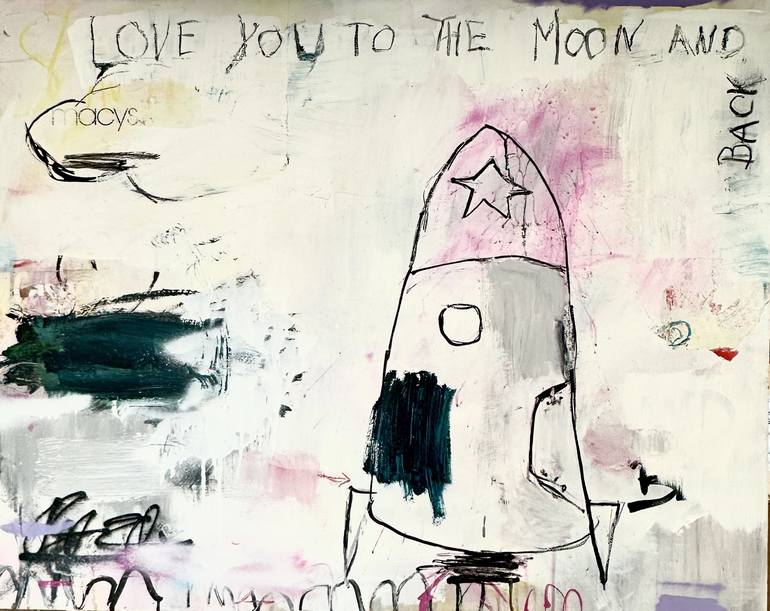 LOVE YOU TO THE MOON AND
BACK
macys